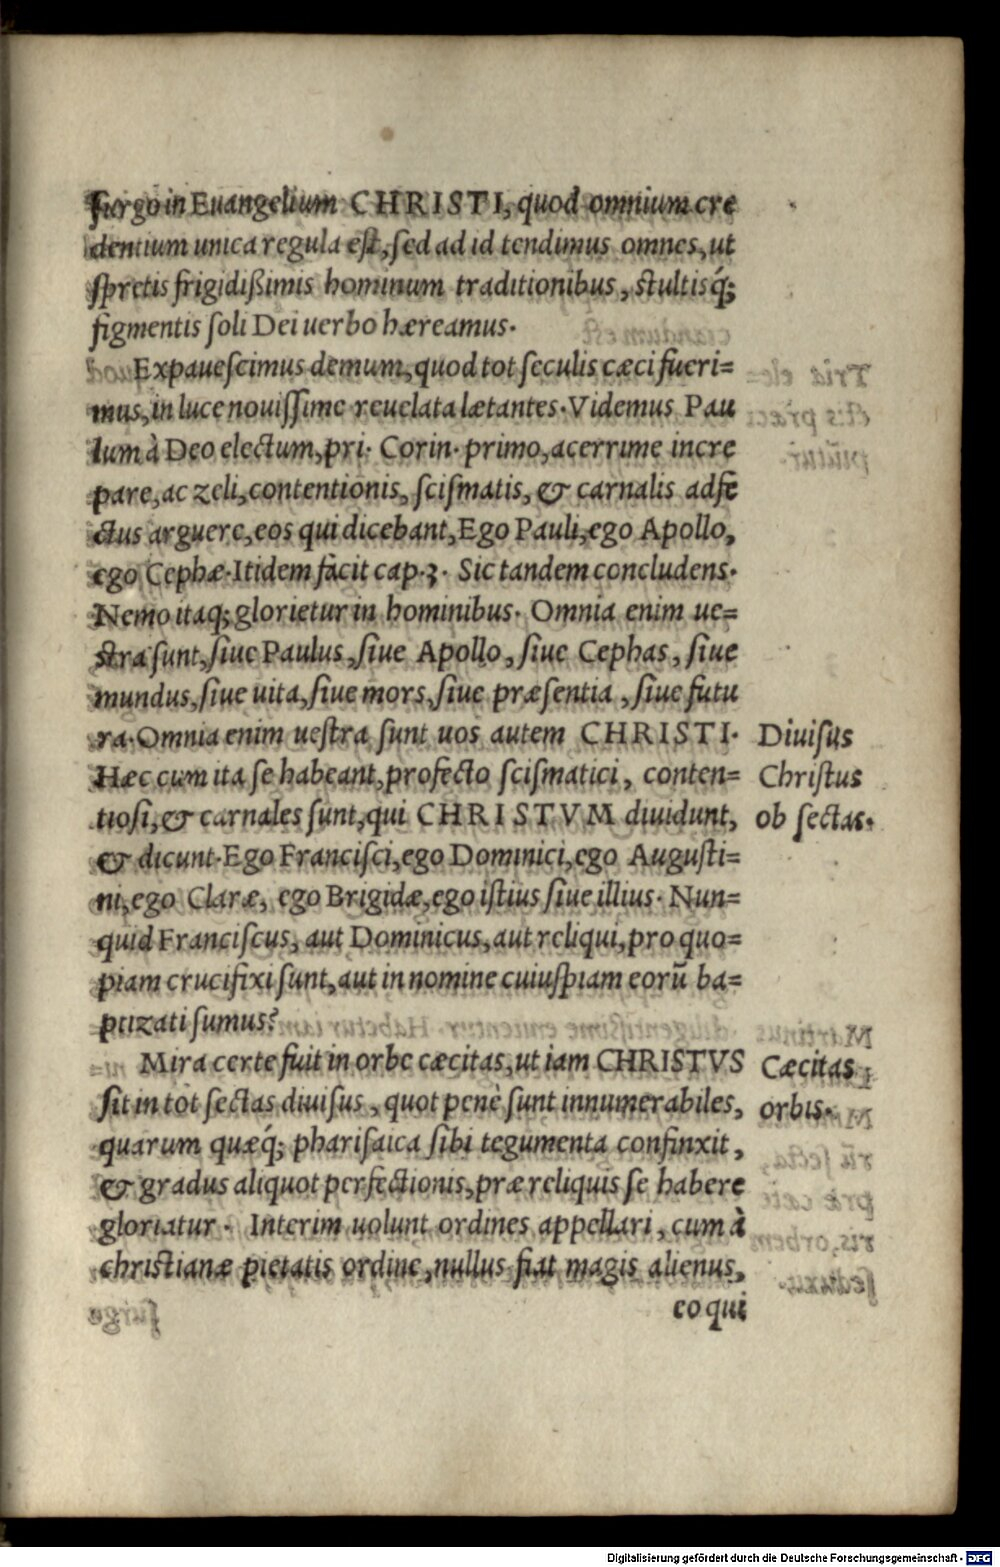 surgo in Euangelium CHRISTI, quod omnium cre
dentium unica regula est, sed ad id tendimus omnes, ut
spretis frigidißimis hominum traditionibus, stultisq́;
figmentis soli Dei uerbo hæreamus.
Expauescimus demum, quod tot seculis cæci fueri=
mus, in luce nouissime reuelata lætantes. Videmus Pau
lum à Deo electum, pri. Corin. primo, acerrime incre
pare, ac zeli, contentionis, scismatis, & carnalis adfe
ctus arguere, eos qui dicebant, Ego Pauli, ego Apollo,
ego Cephæ. Itidem facit cap. 3. Sic tandem concludens.
Nemo itaq; glorietur in hominibus. Omnia enim ue=
stra sunt, siue Paulus, siue Apollo, siue Cephas, siue
mundus, siue uita, siue mors, siue præsentia, siue futu
ra. Omnia enim uestra sunt uos autem CHRISTI.
Hæc cum ita se habeant, profecto scismatici, conten=
tiosi, & carnales sunt, qui CHRISTVM diuidunt,
& dicunt. Ego Francisci, ego Dominici, ego Augusti=
ni, ego Claræ, ego Brigidæ, ego istius siue illius. Nun=
quid Franciscus, aut Dominicus, aut reliqui, pro quo=
piam crucifixi sunt, aut in nomine cuiuspiam eorū ba=
ptizati sumus?
Mira certe fuit in orbe cæcitas, ut iam CHRISTVS
sit in tot sectas diuisus, quot penè sunt innumerabiles,
quarum quæq́; pharisaica sibi tegumenta confinxit,
& gradus aliquot perfectionis, præ reliquis se habere
gloriatur. Interim uolunt ordines appellari, cum à
christianæ pietatis ordine, nullus fiat magis alienus,
eo qui
Diuisus
Christus
ob sectas.
Cæcitas
orbis.
Digitalisierung gefördert durch die Deutsche Forschungsgemeinschaft - DFG